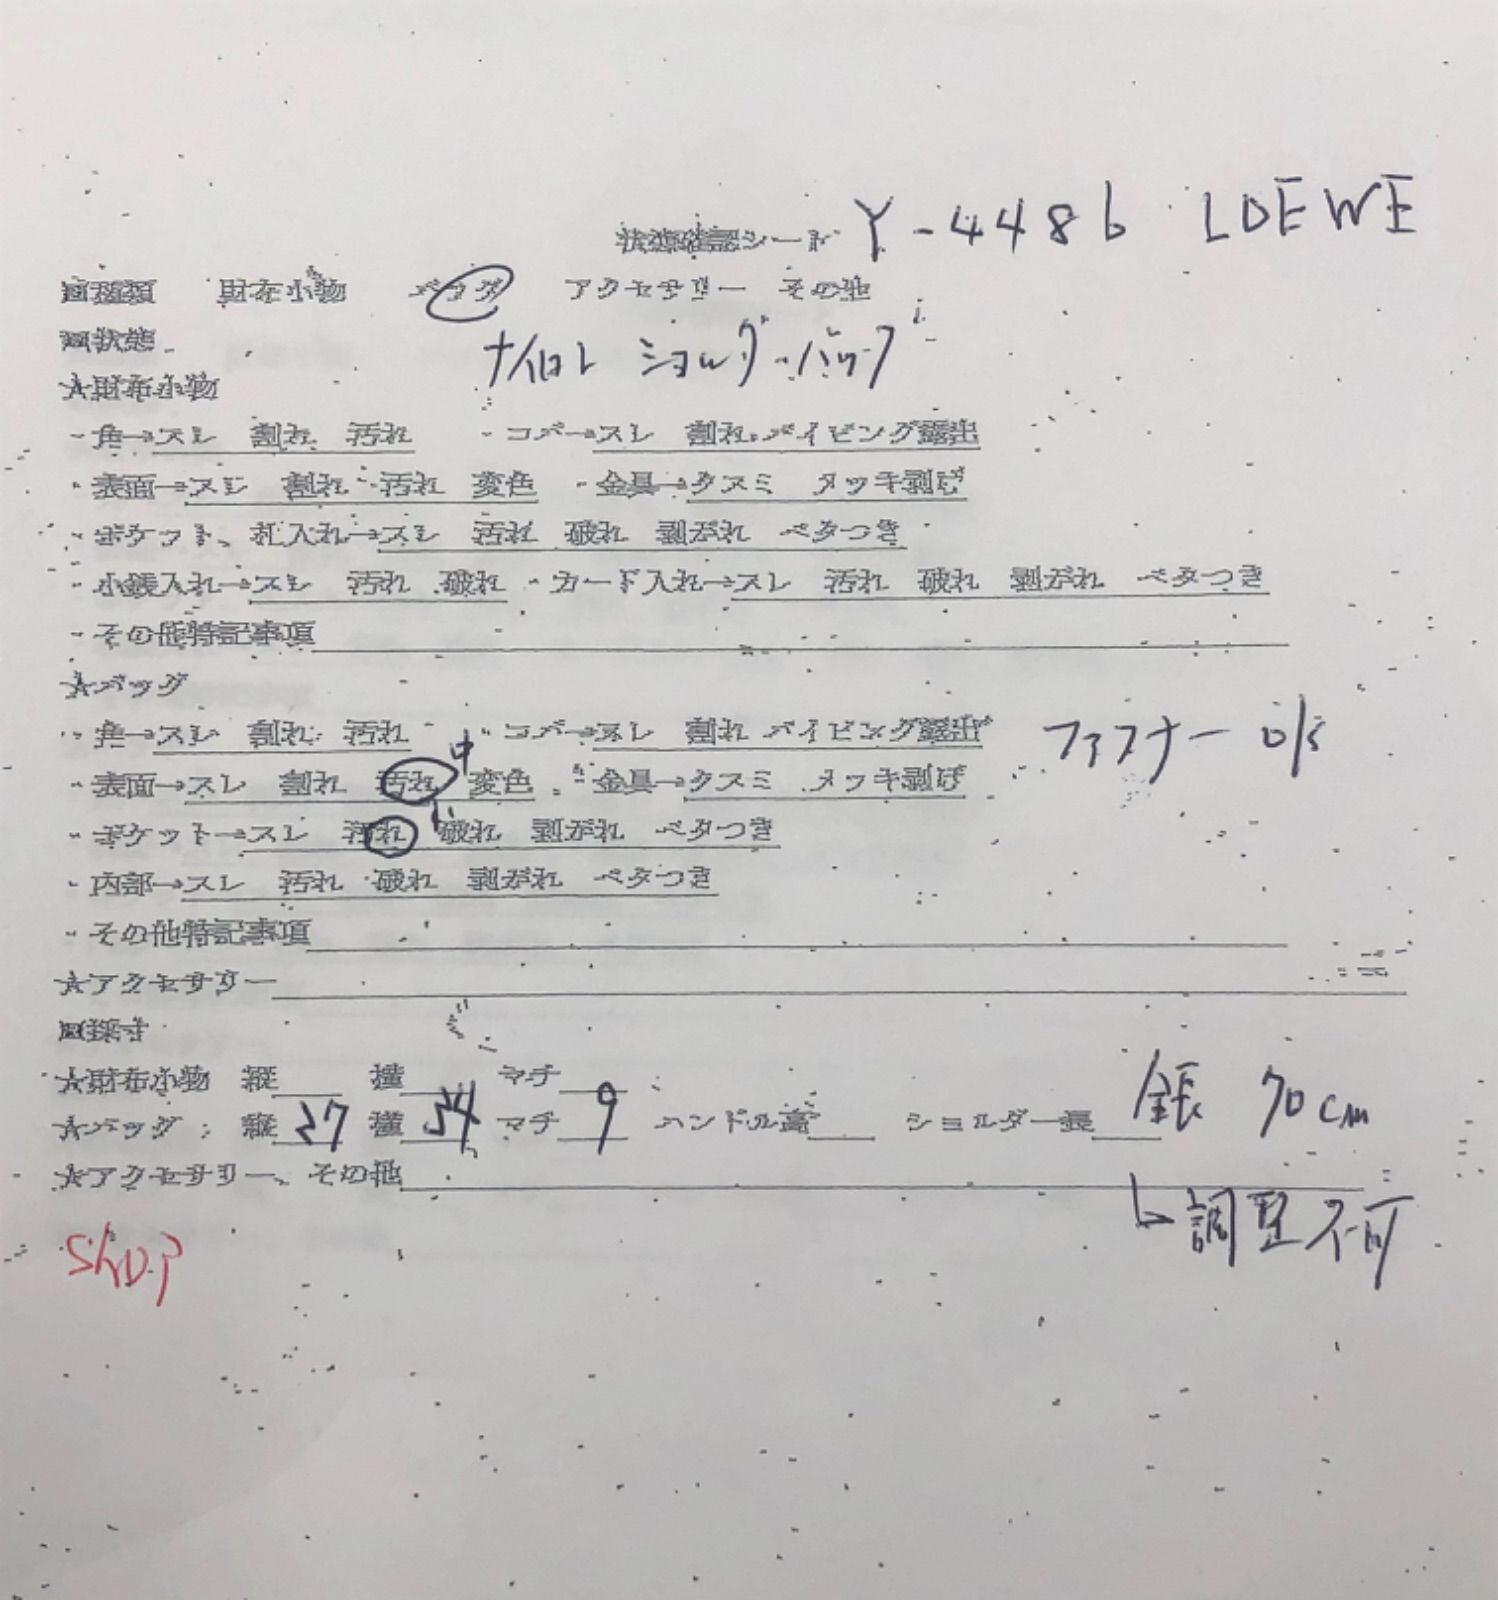 状態確認シート Y-4486 LOEWE
■種類 財布小物 バッグ アクセサリー その他
■状態 ナイロン ショルダーバッグ
★財布小物
・角→スレ 割れ 汚れ ・コバ→スレ 割れ パイピング露出
・表面→スレ 割れ 汚れ 変色 ・金具→クスミ メッキ剥げ
・ポケット、札入れ→スレ 汚れ 破れ 剥がれ ベタつき
・小銭入れ→スレ 汚れ 破れ ・カード入れ→スレ 汚れ 破れ 剥がれ ベタつき
・その他特記事項
★バッグ
・角→スレ 割れ 汚れ ・コバ→スレ 割れ パイピング露出 ファスナー ok
・表面→スレ 割れ 汚れ 中 変色 ・金具→クスミ メッキ剥げ
・ポケット→スレ 汚れ 小 破れ 剥がれ ベタつき
・内部→スレ 汚れ 破れ 剥がれ ベタつき
・その他特記事項
★アクセサリー
■採寸
★財布小物 縦 横 マチ
★バッグ: 縦 27 横 34 マチ 9 ハンドル高 ショルダー長 全長 70cm
★アクセサリー、その他
↳調整不可